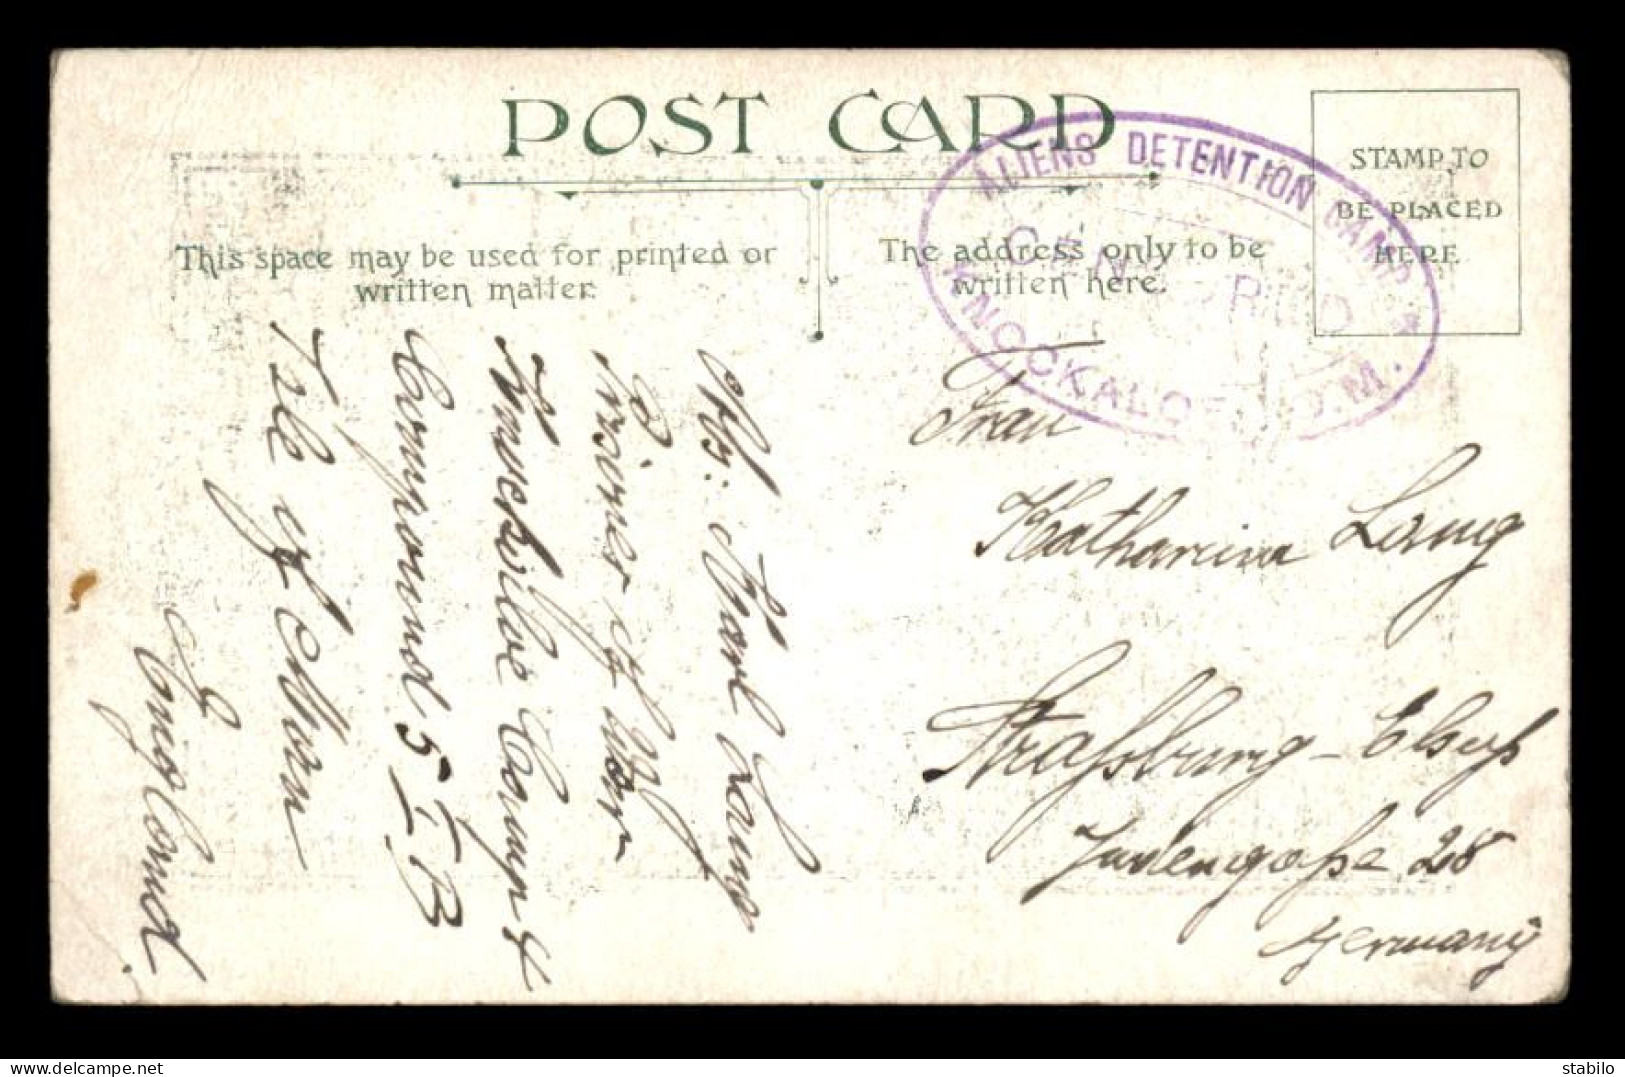 POST CARD
ALIENS DETENTION CAMP
CENSORED
KNOCKALOE, I.O.M.
STAMP TO
BE PLACED
HERE
This space may be used for printed or
written matter.
The address only to be
written here.
Abs: Karl Lang
Prisoner of War
Knockaloe Camp 4
Compound 5 I B
Isle of Man
England
Frau
Katharina Lang
Straßburg - Elsaß
Judengaße 28
Germany
stabilo
www.delcampe.net